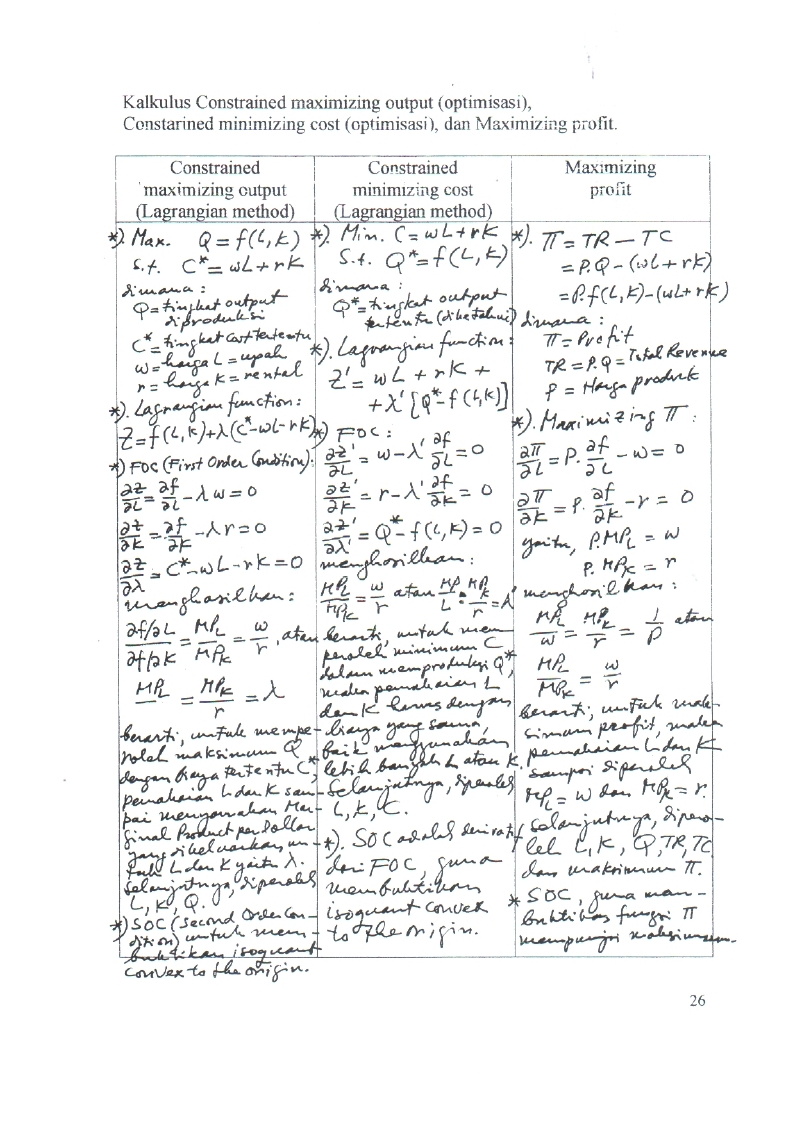 Kalkulus Constrained maximizing output (optimisasi),
Constarined minimizing cost (optimisasi), dan Maximizing profit.
Constrained
maximizing output
(Lagrangian method)
*). Max. Q = f(L,K)
S.t. C* = wL + rK
dimana :
Q = tingkat output
diproduksi
C* = tingkat cost tertentu
w = harga L = upah
r = harga K = rental
*). Lagrangian function :
Z = f(L,K) + λ(C* - wL - rK)
*) FOC (First Order Condition):
∂Z/∂L = ∂f/∂L - λw = 0
∂Z/∂K = ∂f/∂K - λr = 0
∂Z/∂λ = C* - wL - rK = 0
menghasilkan :
∂f/∂L / ∂f/∂K = MPL/MPK = w/r , atau
MPL = MPK/r = λ
berarti, untuk mempe-
roleh maksimum Q
dengan biaya tertentu C*,
pemakaian L dan K sam-
pai menyamakan Mar-
ginal Product per Dollar
yang dikeluarkan un-
tuk L dan K yaitu λ.
Selanjutnya, diperoleh
L, K, Q.
*) SOC (Second Order Con-
dition) untuk mem-
buktikan isoquant
convex to the origin.
Constrained
minimizing cost
(Lagrangian method)
*). Min. C = wL + rK
S.t. Q* = f(L,K)
dimana :
Q* = tingkat output
tertentu (diketahui)
*). Lagrangian function :
Z' = wL + rK +
+ λ' [Q* - f(L,K)]
*) FOC :
∂Z'/∂L = w - λ' ∂f/∂L = 0
∂Z'/∂K = r - λ' ∂f/∂K = 0
∂Z'/∂λ' = Q* - f(L,K) = 0
menghasilkan :
MPL/MPK = w/r atau MP/L = MPK/r = λ'
berarti, untuk mem
peroleh minimum C
dalam memproduksi Q*,
maka pemakaian L
dan K harus dengan
biaya yang sama,
baik menggunakan
lebih banyak L atau K.
Selanjutnya, diperoleh
L, K, C.
*). SOC adalah derivatif
dari FOC, guna
membuktikan
isoquant convex
to the origin.
Maximizing
profit
*). π = TR - TC
= P.Q - (wL + rK)
= P.f(L,K) - (wL + rK)
dimana :
π = Profit
TR = P.Q = Total Revenue
P = Harga produk
*). Maximizing π :
∂π/∂L = P. ∂f/∂L - w = 0
∂π/∂K = P. ∂f/∂K - r = 0
yaitu, P.MPL = w
P.MPK = r
menghasilkan :
MPL/w = MPK/r = 1/P atau
MPL/MPK = w/r
berarti, untuk mak-
simum profit, maka
pemakaian L dan K
sampai diperoleh
MPL = w dan MPK = r.
Selanjutnya, dipero-
leh L, K, Q, TR, TC
dan maksimum π.
* SOC, guna mem-
buktikan fungsi π
mempunyai maksimum.
26